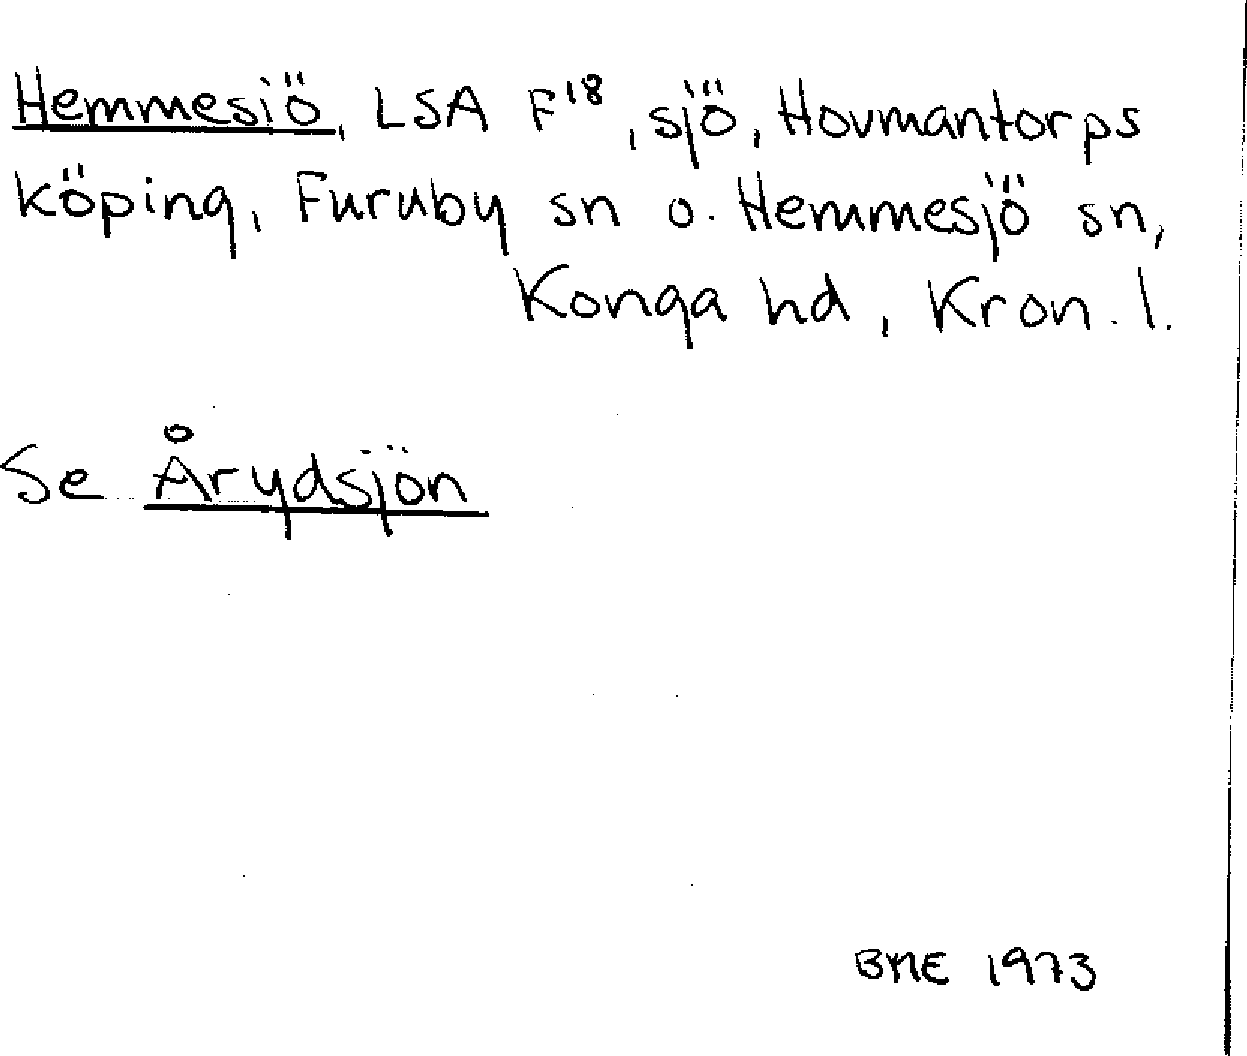 Hemmesiö, LSA F18, sjö, Hovmantorps
köping, Furuby sn o. Hemmesjö sn,
Konga hd, Kron. l.
Se Årydsjön
BME 1973